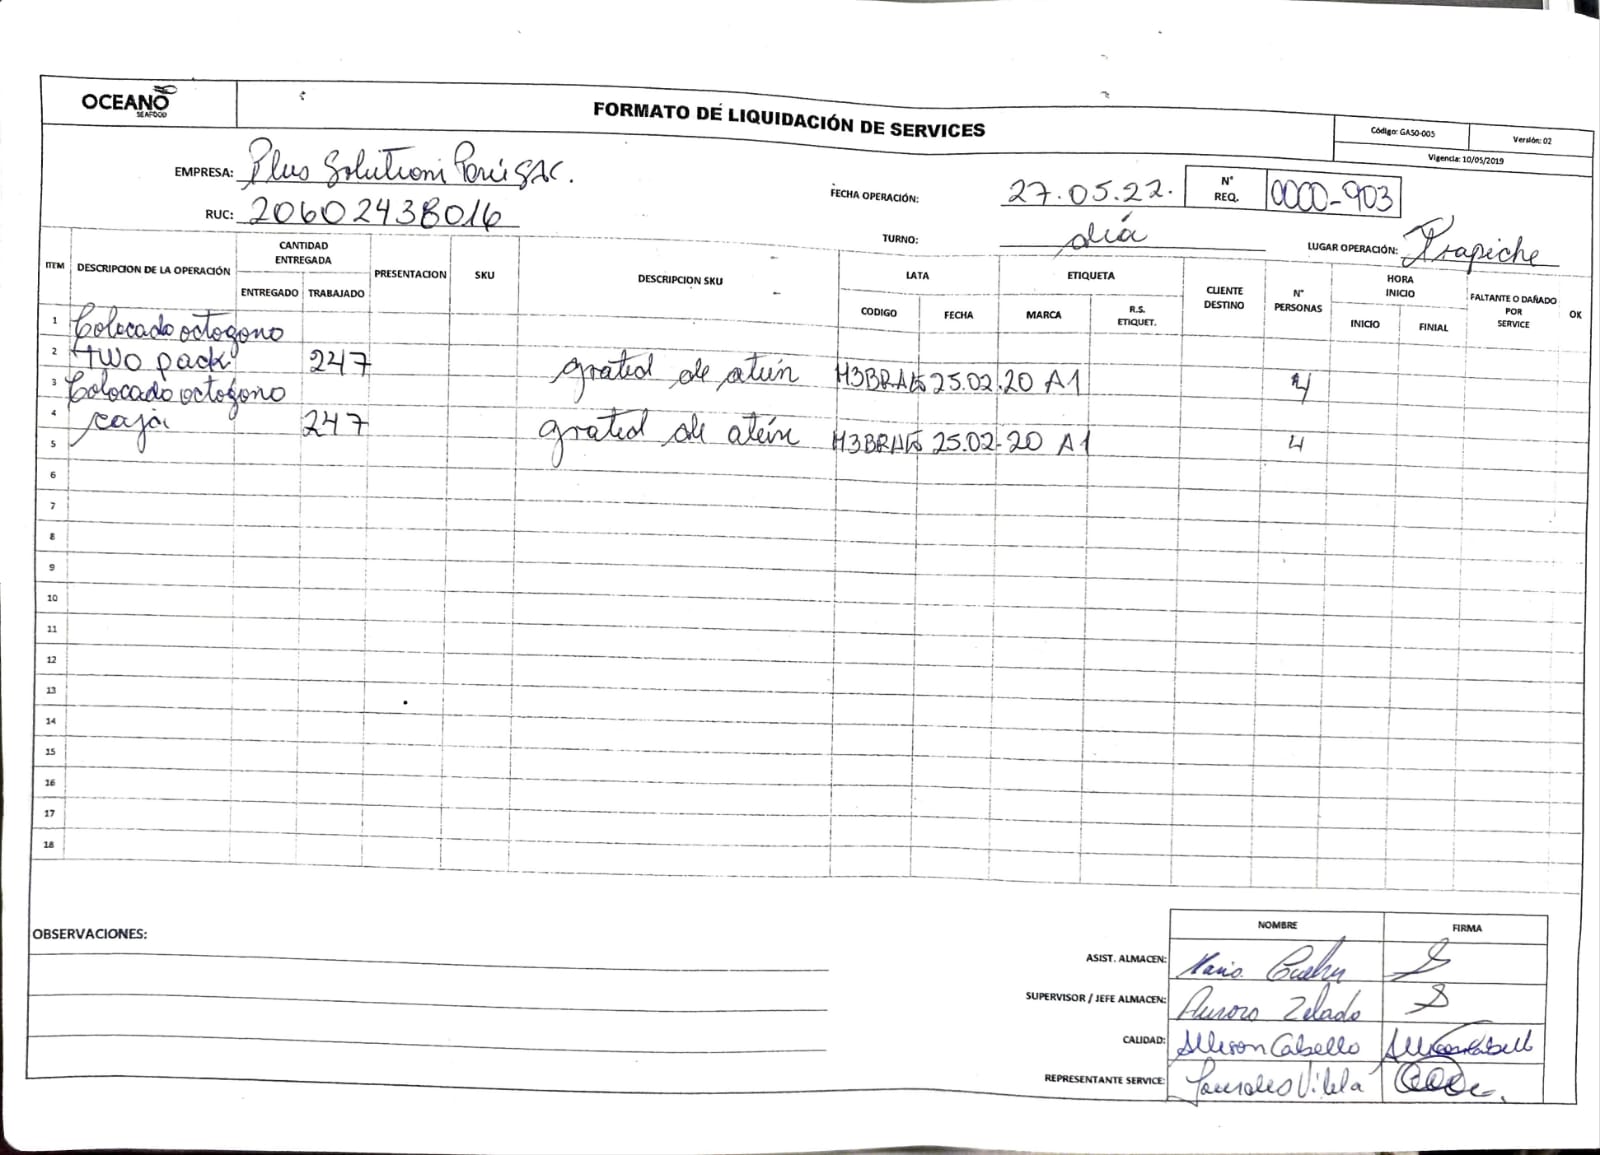 OCEANO
SEAFOOD
FORMATO DE LIQUIDACIÓN DE SERVICES
Código: GASO-005
Versión: 02
Vigencia: 10/05/2019
EMPRESA: Plus Solutioni Perú SAC.
FECHA OPERACIÓN: 27.05.22.
N° REQ. 0000-903
RUC: 20602438016
TURNO: día
LUGAR OPERACIÓN: Trapiche
ITEM DESCRIPCION DE LA OPERACIÓN CANTIDAD ENTREGADA PRESENTACION SKU DESCRIPCION SKU LATA ETIQUETA CLIENTE DESTINO N° PERSONAS HORA INICIO FALTANTE O DAÑADO POR SERVICE OK
ENTREGADO TRABAJADO CODIGO FECHA MARCA R.S. ETIQUET. INICIO FINIAL
1 Colocado octogono
2 two pack 247 grated de atún 25.02.20 A1 4
3 Colocado octogono
4 caja 247 grated de atún 25.02-20 A1 4
5
6
7
8
9
10
11
12
13
14
15
16
17
18
OBSERVACIONES:
NOMBRE FIRMA
ASIST. ALMACEN:
SUPERVISOR / JEFE ALMACEN: Aurora Zelado
CALIDAD: Allison Cabello
REPRESENTANTE SERVICE: Lourdes Vilela